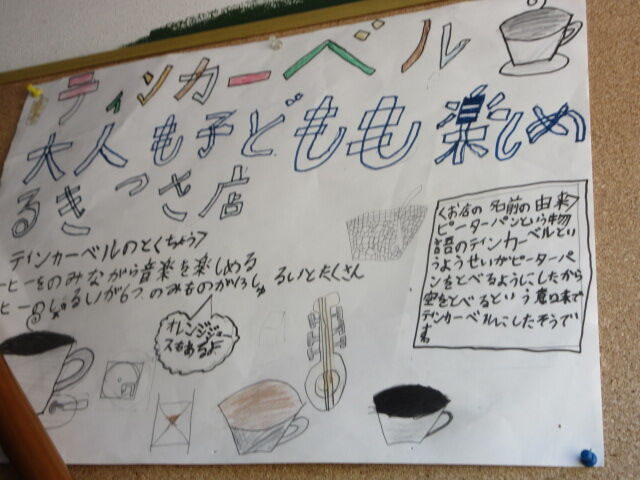 ティンカーベル
大人も子どもも楽しめ
るきっさ店
ティンカーベルのとくちょう〉
ーヒーをのみながら音楽を楽しめる
ヒーのしゅるいが6つ のみものが13しゅるいとたくさん
オレンジジュー
スもあるよ
〈お店の名前の由来〉
ピーターパンという物
語のティンカーベルとい
うようせいがピーターパ
ンをとべるようにしたから
空をとべるという意味で
ティンカーベルにしたそうで
す。